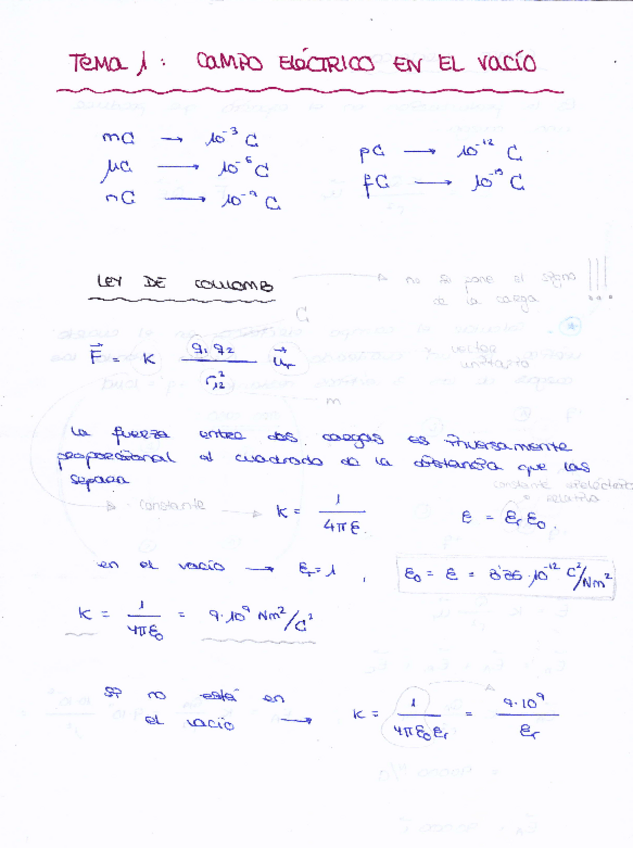 TEMA 1: CAMPO ELÉCTRICO EN EL VACÍO
mC → 10⁻³ C
μC → 10⁻⁶ C
nC → 10⁻⁹ C
pC → 10⁻¹² C
fC → 10⁻¹⁵ C
LEY DE COULOMB → no se pone el signo de la carga !!!
C
F⃗ = K q₁ q₂ / r₁₂² u⃗r
vector unitario
m
La fuerza entre dos cargas es inversamente
proporcional al cuadrado de la distancia que las
separa
constante dieléctrica relativa
constante → K = 1 / 4πε. ε = εr ε0.
en el vacío → εr = 1, ε0 = ε = 8'85·10⁻¹² C²/Nm²
K = 1 / 4πε0 = 9·10⁹ Nm²/C²
Si no está en
el vacío → K = 1 / 4πε0εr = 9·10⁹ / εr